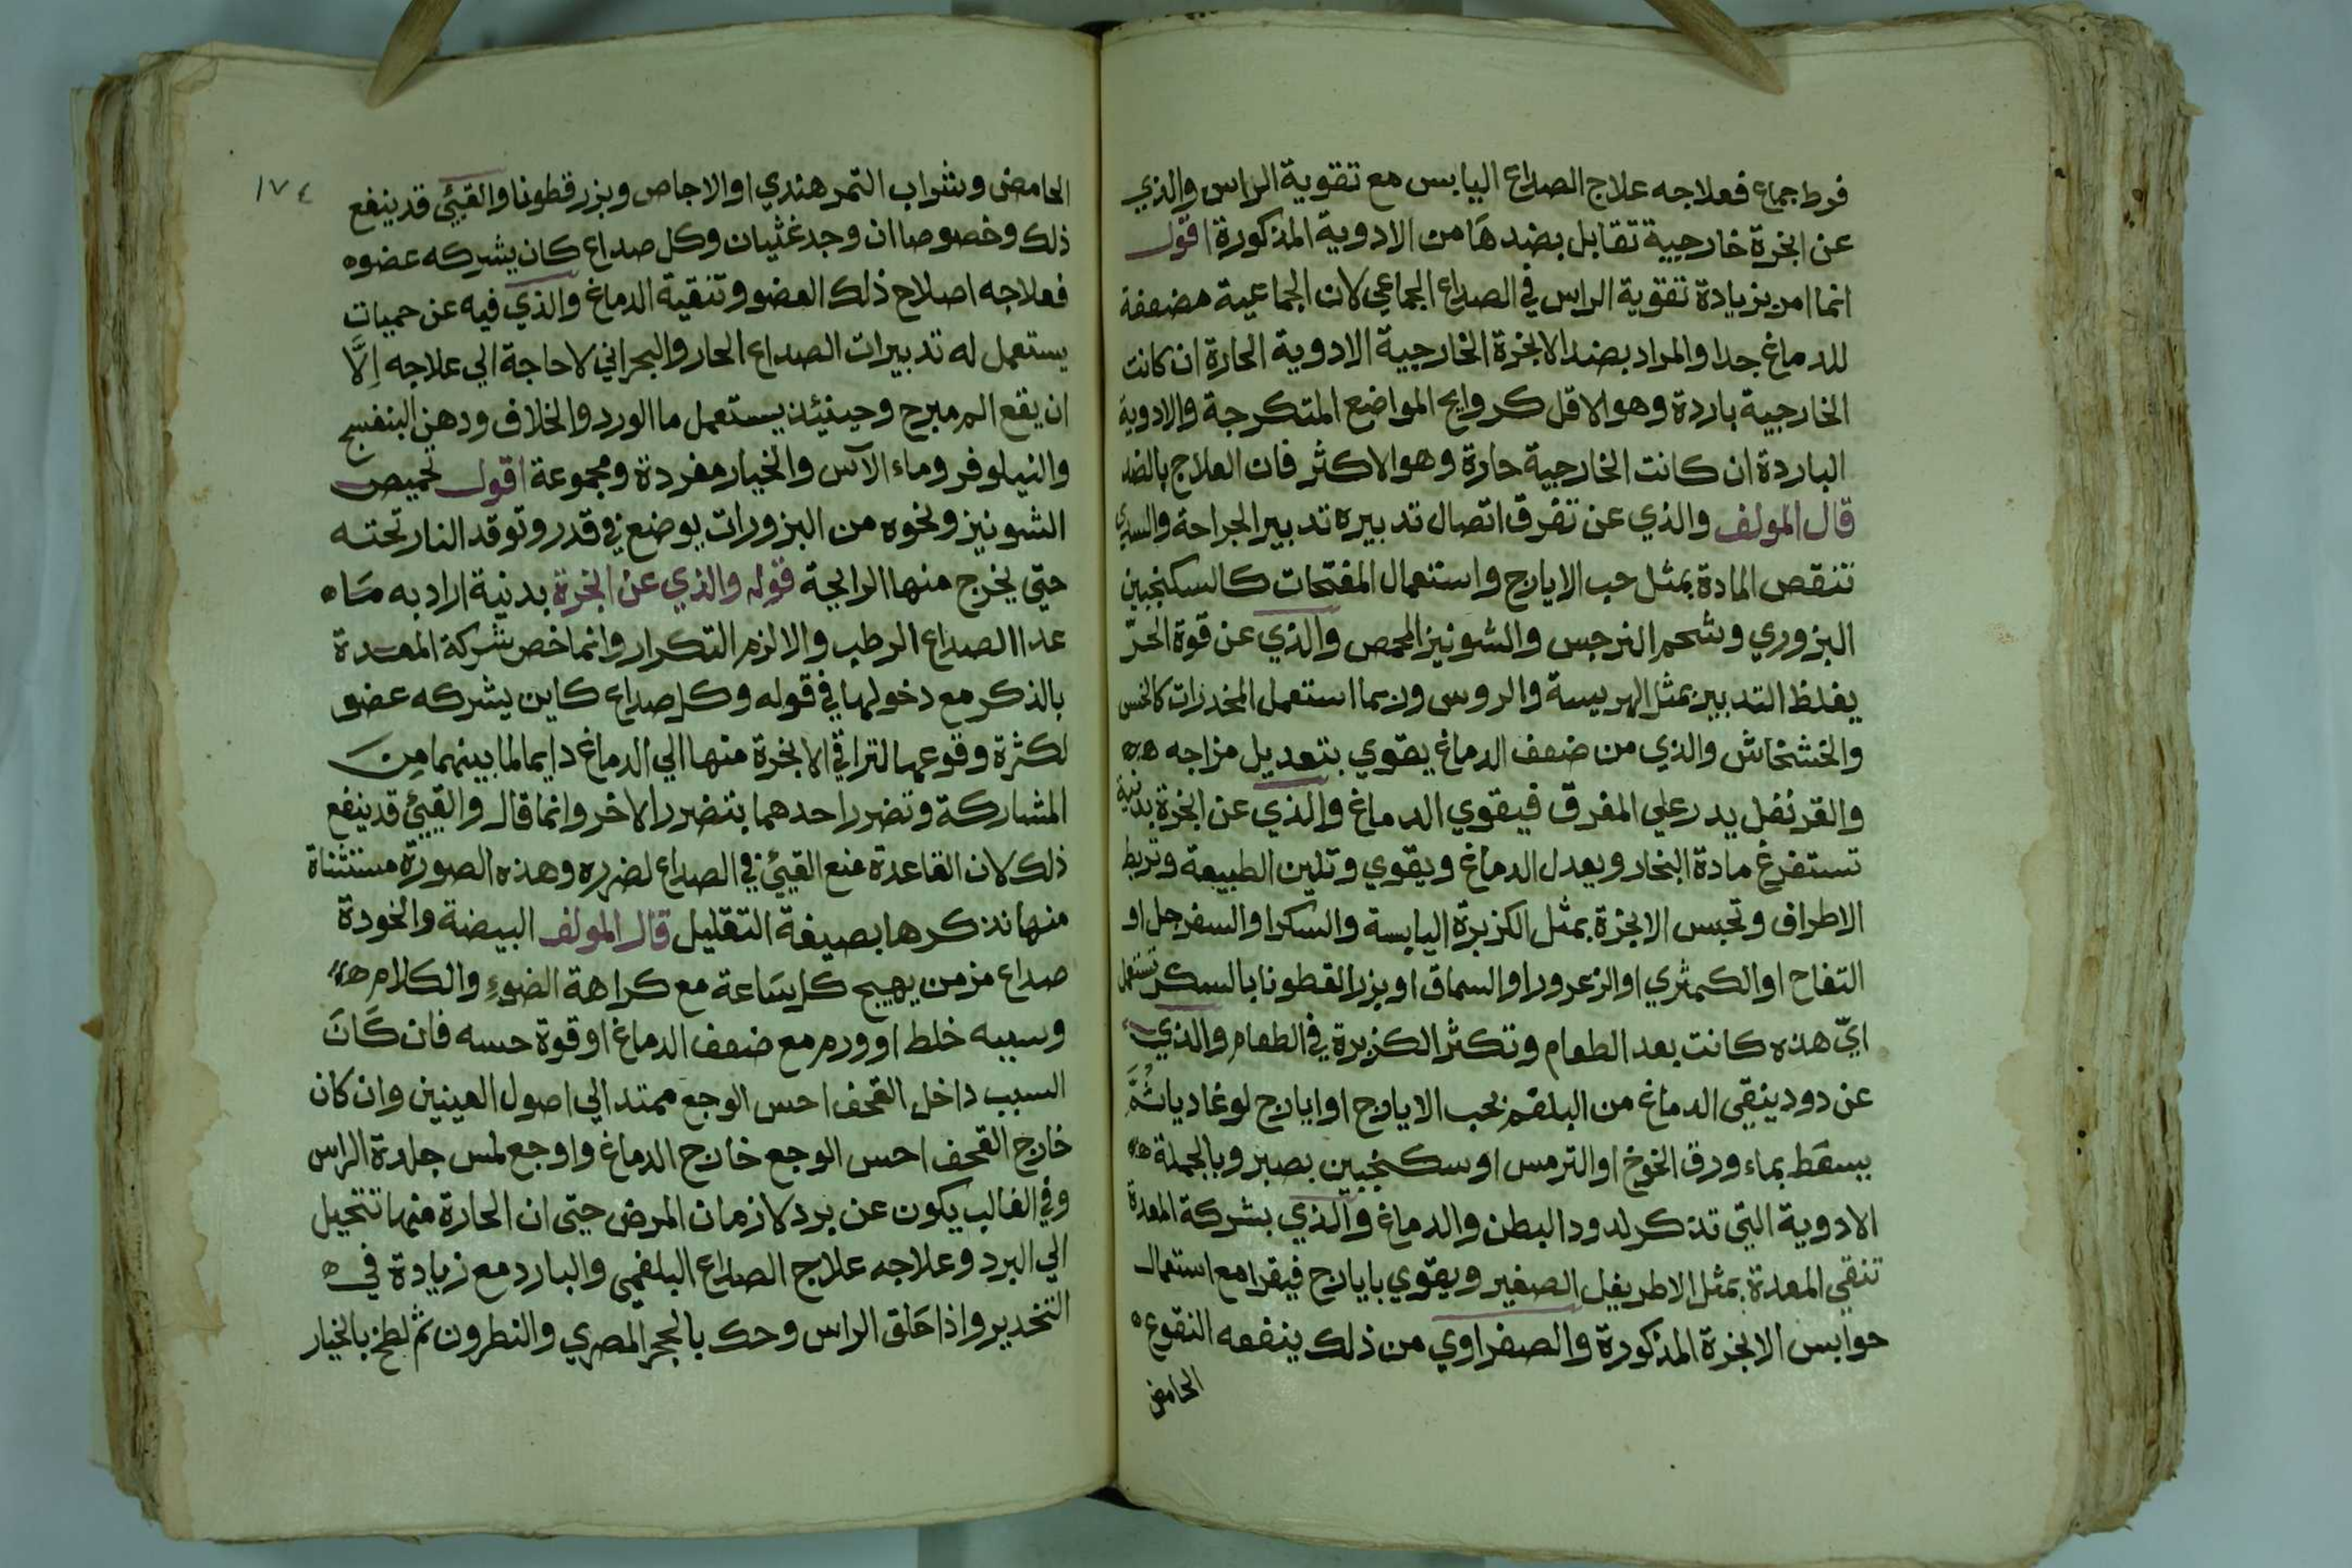 فرط جماع فعلاجه علاج الصداع اليابس مع تقوية الراس والذي
عن ابخرة خارجية تقابل بضدها من الادوية المذكورة اقول
انما امر بزيادة تقوية الراس في الصداع الجماعي لان الجماعية مضعفة
للدماغ جدا والمراد بضد الابخرة الخارجية الادوية الحارة ان كانت
الخارجية باردة وهو الاقل كروايح المواضع المتكرجة والادوية
الباردة ان كانت الخارجية حارة وهو الاكثر فان العلاج بالضد
قال المولف والذي عن تفرق اتصال تدبيره تدبير الجراحة والسدي
تنقص المادة بمثل حب الايارج واستعمال المفتحات كالسكنجبين
البزوري وشحم النرجس والشونيز المحمص والذي عن قوة الحر
يغلظ التدبير بمثل الهريسة والروس وربما استعمل المخدرات كالخس
والخشخاش والذي من ضعف الدماغ يقوي بتعديل مزاجه
والقرنفل يدر علي المفرق فيقوي الدماغ والذي عن ابخرة بدنية
تستفرغ مادة البخار ويعدل الدماغ ويقوي وتلين الطبيعة وتربط
الاطراف وتحبس الابخرة بمثل الكزبرة اليابسة والسكر او السفرجل او
التفاح او الكمثري او الزعرور او السماق او بزر القطونا بالسكر تستعمل
اي هذه كانت بعد الطعام وتكثر الكزبرة في الطعام والذي
عن دود ينقي الدماغ من البلغم بحب الايارج او ايارج لوغاديا ثم
يسقط بماء ورق الخوخ او الترمس او سكنجبين بصبر وبالجملة
الادوية التي تذكر لدود البطن والدماغ والذي بشركة المعدة
تنقي المعدة بمثل الاطريفل الصغير ويقوي بايارج فيقرا مع استعمال
حوابس الابخرة المذكورة والصفراوي من ذلك ينفعه النقوع
الحامض
١٧٤
الحامض وشراب التمر هندي او الاجاص وبزر قطونا والقيئ قد ينفع
ذلك وخصوصا ان وجد غثيان وكل صداع كان يشركه عضو
فعلاجه اصلاح ذلك العضو وتنقية الدماغ والذي فيه عن حميات
يستعمل له تدبيرات الصداع الحار والبحراني لا حاجة الي علاجه الا
ان يقع الم مبرح وحينئذ يستعمل ما الورد والخلاف ودهن البنفسج
والنيلوفر وماء الآس والخيار مفردة ومجموعة اقول تحميص
الشونيز ونحوه من البزورات يوضع في قدر وتوقد النار تحته
حتي يخرج منها الرايحة قوله والذي عن ابخرة بدنية اراد به ما
عدا الصداع الرطب والا لزم التكرار وانما خص شركة المعدة
بالذكر مع دخولها في قوله وكل صداع كاين يشركه عضو
لكثرة وقوعها لتراقي الابخرة منها الي الدماغ دايما لما بينهما من
المشاركة وتضرر احدهما بتضرر الاخر وانما قال والقيئ قد ينفع
ذلك لان القاعدة منع القيئ في الصداع لضرره وهذه الصورة مستثناة
منها نذكرها بصيغة التقليل قال المولف البيضة والخودة
صداع مزمن يهيج كل ساعة مع كراهة الضوء والكلام
وسببه خلط او ورم مع ضعف الدماغ او قوة حسه فان كان
السبب داخل القحف احس الوجع ممتد الي اصول العينين وان كان
خارج القحف احس الوجع خارج الدماغ واوجع لمس جلدة الراس
وفي الغالب يكون عن برد لازمان المرض حتي ان الحارة منها تتحيل
الي البرد وعلاجه علاج الصداع البلغمي والبارد مع زيادة في
التخدير واذا حلق الراس وحك بالحجر المصري والنطرون ثم لطخ بالخيار